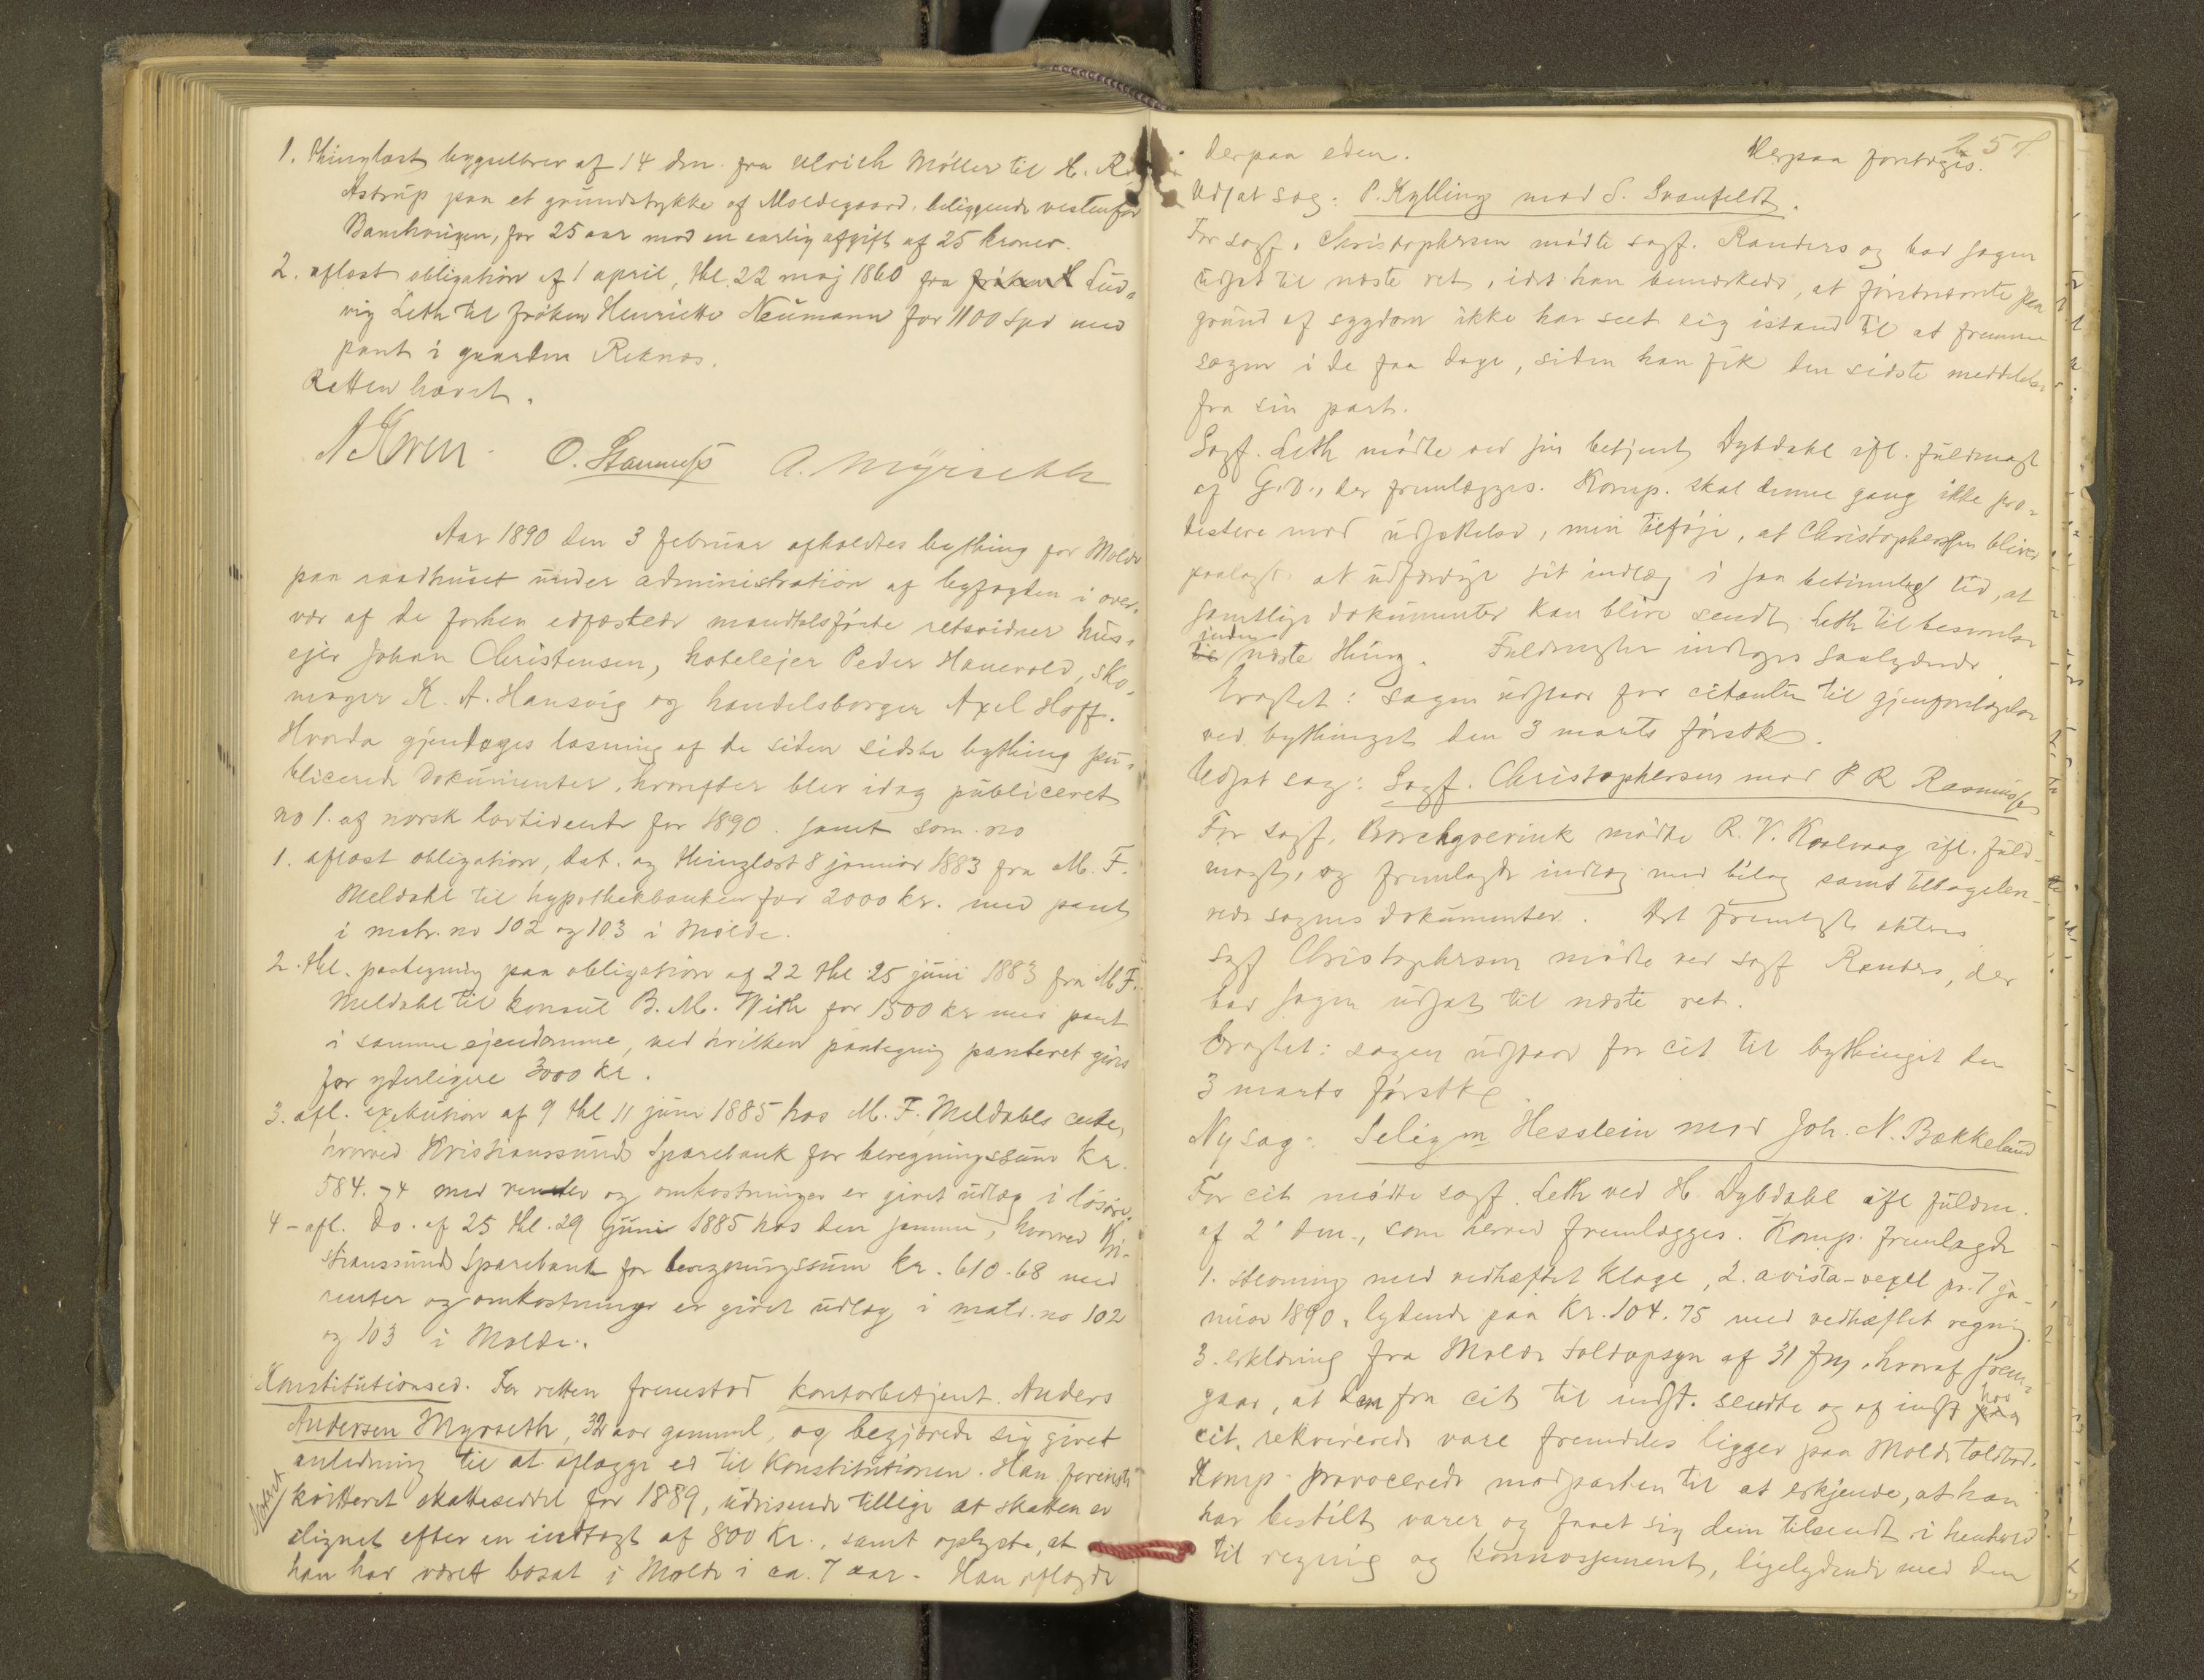 1. Thinglæst bygselbrev af 14 dm. fra Ulrich Møller til H. R.
Astrup paa et grundstykke af Moldegaard, beliggende vestenfor
for 25 aar mod en aarlig afgift af 25 kroner.
2. aflæst obligation af 1 april, thl. 22 maj 1860 fra Lud-
vig Leth til frøken Henriette Neumann for 1100 Spd med
pant i gaarden Reknæs.
Retten hævet.
O. Stanness A. Myrseth
Aar 1890 den 3 februar afholdtes bything for Molde
paa raadhuset under administration af byfogden i over-
vær af de forhen edfæstede mandtalsførte retsvidner hus-
ejer Johan Christensen, hotelejer Peder Hanevold, sko-
mager K. A. Hansvig og handelsborger Axel Hoff.
Hvorda gjentoges læsning af de siden sidste bything pu-
blicerede dokumenter, hvorefter blev idag publiceret
no 1. af norsk lovtidende for 1890. samt som no
1. aflæst obligation, dat. og thinglæst 8 januar 1883 fra M. F.
Meldahl til hypothekbanken for 2000 kr. med pant
i matr. no 102 og 103 i Molde.
2. thl. paategning paa obligation af 22 thl 25 juni 1883 fra M F.
Meldahl til konsul B. M. With for 1500 kr med pant
i samme ejendomme, ved hvilken paategning panteret gives
for yderligere 3000 kr.
3. afl. exekution af 9 thl 11 juni 1885 hos M. F. Meldahls enke,
hvorved Kristianssunds Sparebank for beregningssum kr.
584.74 med renter og omkostninger er givet udlæg i løsøre.
4 - afl. do. af 25 thl. 29 juni 1885 hos den samme, hvorved Kri-
stianssunds Sparebank for beregningssum kr. 610-68 med
renter og omkostninger er givet udlæg i matr. no 102
og 103 i Molde.
Konstitutionsed. For retten fremstod kontorbetjent Anders
Andersen Myrseth, 32 aar gammel, og begjærede sig givet
anledning til at aflægge ed til Konstitutionen. Han foreviste
Noteret kvitteret skatteseddel for 1889, udvisende tillige at skatten er
lignet efter en indtægt af 800 kr., samt oplyste, at
han har været bosat i Molde i ca. 7 aar. Han aflagde
257.
derpaa eden. Derpaa foretoges.
Udsat sag: P. Kylling mod S. Svanfeldt.
For sagf. Christophersen mødte sagf. Randers og bad sagen
udsat til næste ret, idet han bemærkede, at førstnævnte paa
grund af sygdom ikke har seet sig istand til at fremme
sagen i de faa dage, siden han fik den sidste meddelelse
fra sin part.
Sagf. Leth mødte ved sin betjent Dybdahl ifl. fuldmagt
af G. D., der fremlægges. Komp. skal denne gang ikke pro-
testere mod udsættelse, men tilføje, at Christophersen bliver
paalagt at udfærdige sit indlæg i saa betimelig tid, at
samtlige dokumenter kan blive sendt Leth til besvarelse
inden næste thing. Fuldmagten indtages saalydende
Eragtet: Sagen udstaar for citanten til gjenforelæggelse
ved bythinget den 3 marts førstk.
Udsat sag: Sagf. Christophersen mod P R Rasmussen
For sagf. Borchgrevink mødte R. V. Kaalvaag ifl. fuld-
magt, og fremlagde indlæg med bilag samt tilbagelev-
rede sagens dokumenter. Det fremlagte akteres
Sagf Christophersen mødte ved sagf Randers, der
bad sagen udsat til næste ret.
Eragtet: sagen udstaar for cit til bythinget den
3 marts førstk.
Ny sag: Seligm Hesslein mod Joh. N. Bækkelund
For cit mødte sagf. Leth ved H. Dybdahl ifl fuldm.
af 2' dm., som herved fremlægges. Komp. fremlagde
1. stevning med vedhæftet klage, 2. avista-vexel pr. 7 ja-
nuar 1890, lydende paa kr. 104.75 med vedhæftet regning
3. erklæring fra Molde toldopsyn af 31 f.m., hvoraf frem-
gaar, at den fra cit til indst. sendte og af indst hos
cit. rekvirerede vare fremdeles ligger paa Molde toldbod.
Komp. provocerede modparten til at erkjende, at han
har bestilt varer og faaet sig dem tilsendt i henhold
til regning og konnossement, ligelydende med den